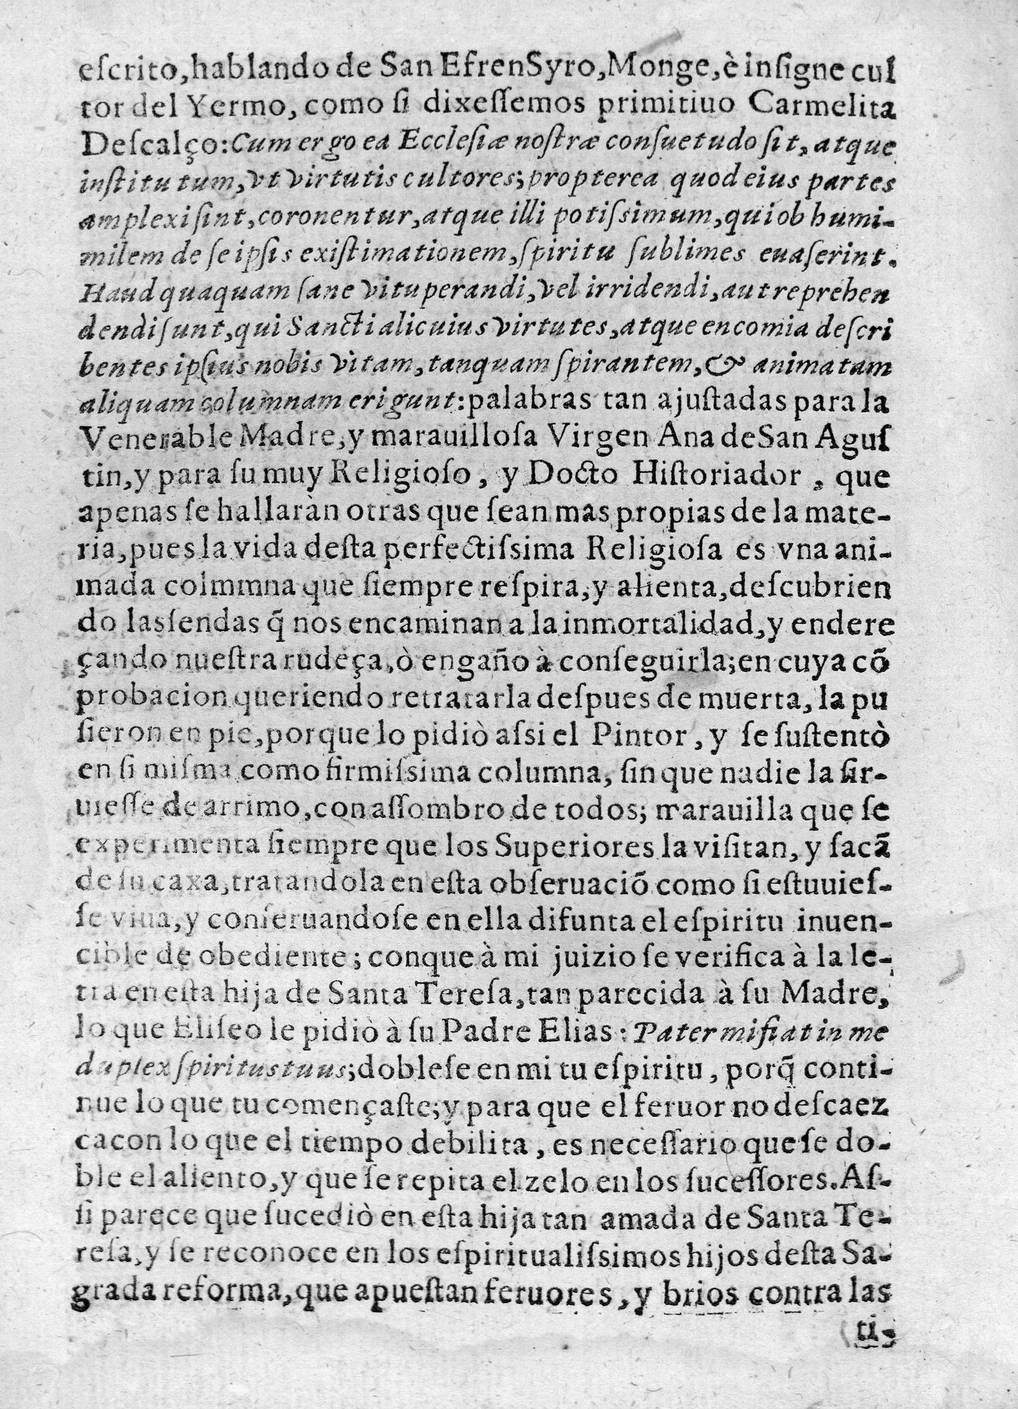 eſcrito,hablando de San EfrenSyro,Monge,è inſigne cul
tor del Yermo, como ſi dixeſſemos primitiuo Carmelita
Deſcalço:Cum ergo ea Eccleſiæ noſtræ conſuetudo ſit, atque
inſtitutum,vt virtutis cultores;propterea quod eius partes
amplexi ſint,coronentur,atque illi potiſsimum,qui ob humi-
milem de ſe ipſis exiſtimationem,ſpiritu ſublimes euaſerint.
Haudquaquam ſane vituperandi,vel irridendi,aut reprehen
dendi ſunt,qui Sancti alicuius virtutes,atque encomia deſcri
bentes ipſius nobis vitam,tanquam ſpirantem,& animatam
aliquam columnam erigunt:palabras tan ajuſtadas para la
Venerable Madre,y marauilloſa Virgen Ana deSan Aguſ
tin,y para ſu muy Religioſo, y Docto Hiſtoriador, que
apenas ſe hallaràn otras que ſean mas propias de la mate-
ria,pues la vida deſta perfectiſsima Religioſa es vna ani-
mada colmmna que ſiempre reſpira,y alienta,deſcubrien
do las ſendas q̃ nos encaminan a la inmortalidad,y endere
çando nueſtra rudeça,ò engaño à conſeguirla;en cuya cõ
probacion queriendo retratarla deſpues de muerta, la pu
ſieron en pie,porque lo pidiò aſsi el Pintor, y ſe ſuſtentò
en ſi miſma como firmiſsima columna, ſin que nadie la ſir-
uieſſe de arrimo,con aſſombro de todos; marauilla que ſe
experimenta ſiempre que los Superiores la viſitan, y ſacã
de ſu caxa,tratandola en eſta obſeruaciõ como ſi eſtuuieſ-
ſe viua,y conſeruandoſe en ella difunta el eſpiritu inuen-
cible de obediente; conque à mi juizio ſe verifica à la le-
tra en eſta hija de Santa Tereſa,tan parecida à ſu Madre,
lo que Eliſeo le pidiò à ſu Padre Elias: Pater mi fiat in me
duplex ſpiritus tuus;dobleſe en mi tu eſpiritu, porq̃ conti-
nue lo que tu començaſte;y para que el feruor no deſcaez
ca con lo que el tiempo debilita, es neceſſario que ſe do-
ble el aliento,y que ſe repita el zelo en los ſuceſſores. Aſ-
ſi parece que ſucediò en eſta hija tan amada de Santa Te-
reſa,y ſe reconoce en los eſpiritualiſsimos hijos deſta Sa-
grada reforma,que apueſtan feruores, y brios contra las
ti-